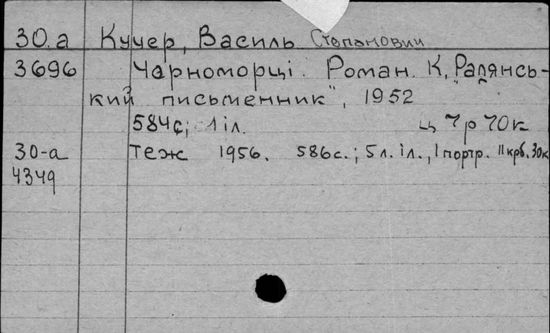 30.а Кучер, Василь Степанович
3696 Чарноморці. Роман. К, "Радянсь-
кий письменник", 1952
584с; 1 іл. ц 7р 70к
30-а Теж 1956. 586с.; 5 л. іл., 1 портр. 11 крб. 30к
4349